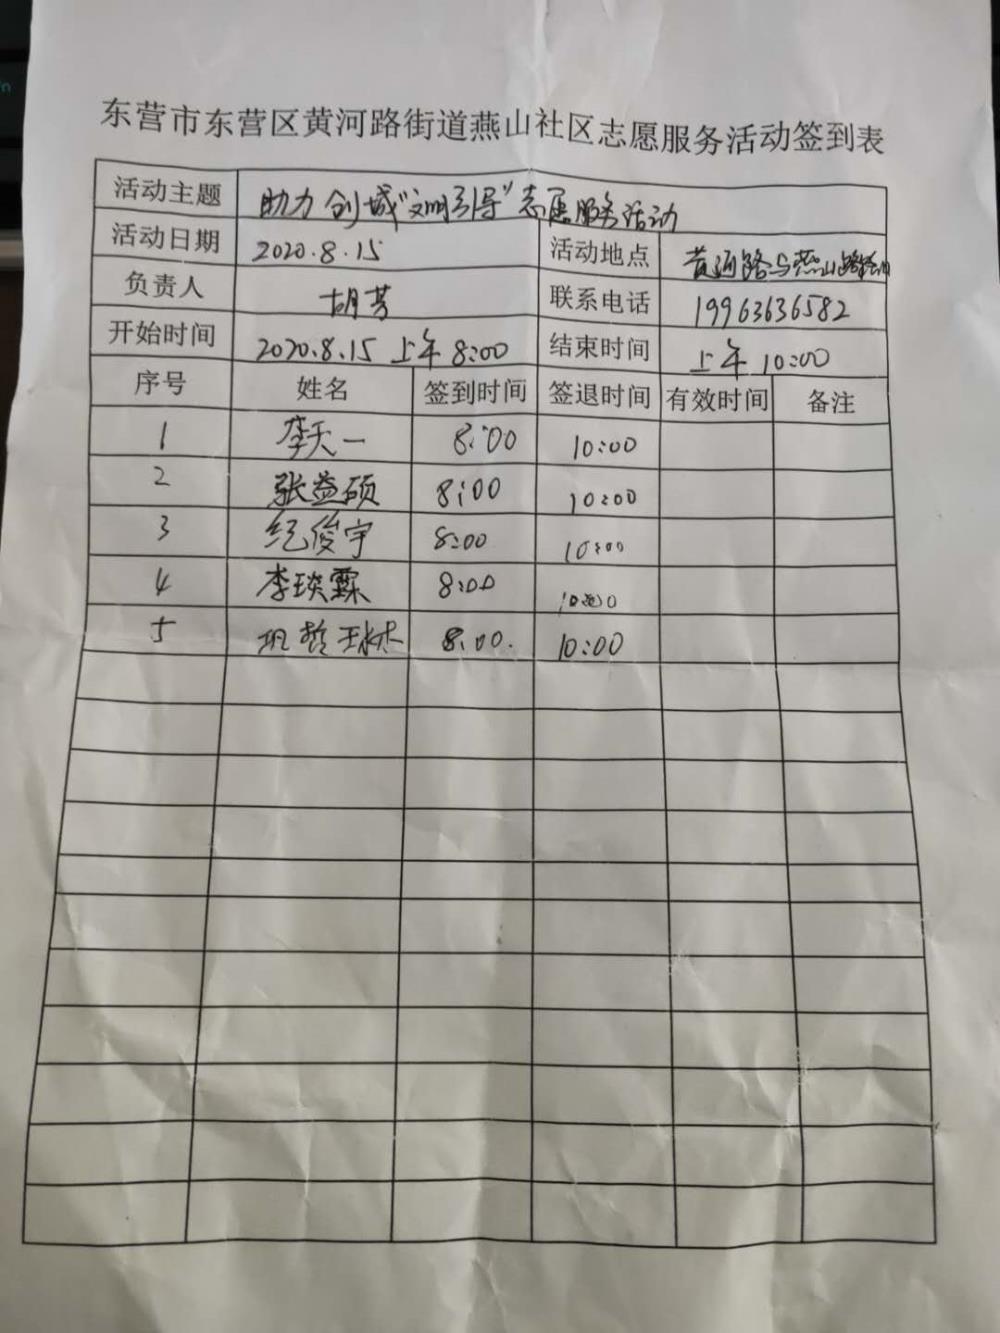 东营市东营区黄河路街道燕山社区志愿服务活动签到表
活动主题 助力创城"文明引导"志愿服务活动
活动日期 2020.8.15 活动地点 黄河路与燕山路
负责人 胡芳 联系电话 19963636582
开始时间 2020.8.15 上午 8:00 结束时间 上午 10:00
序号 姓名 签到时间 签退时间 有效时间 备注
1 李天一 8:00 10:00
2 张益硕 8:00 10:00
3 纪俊宇 8:00 10:00
4 李琰霖 8:00 10:00
5 巩哲 8:00. 10:00